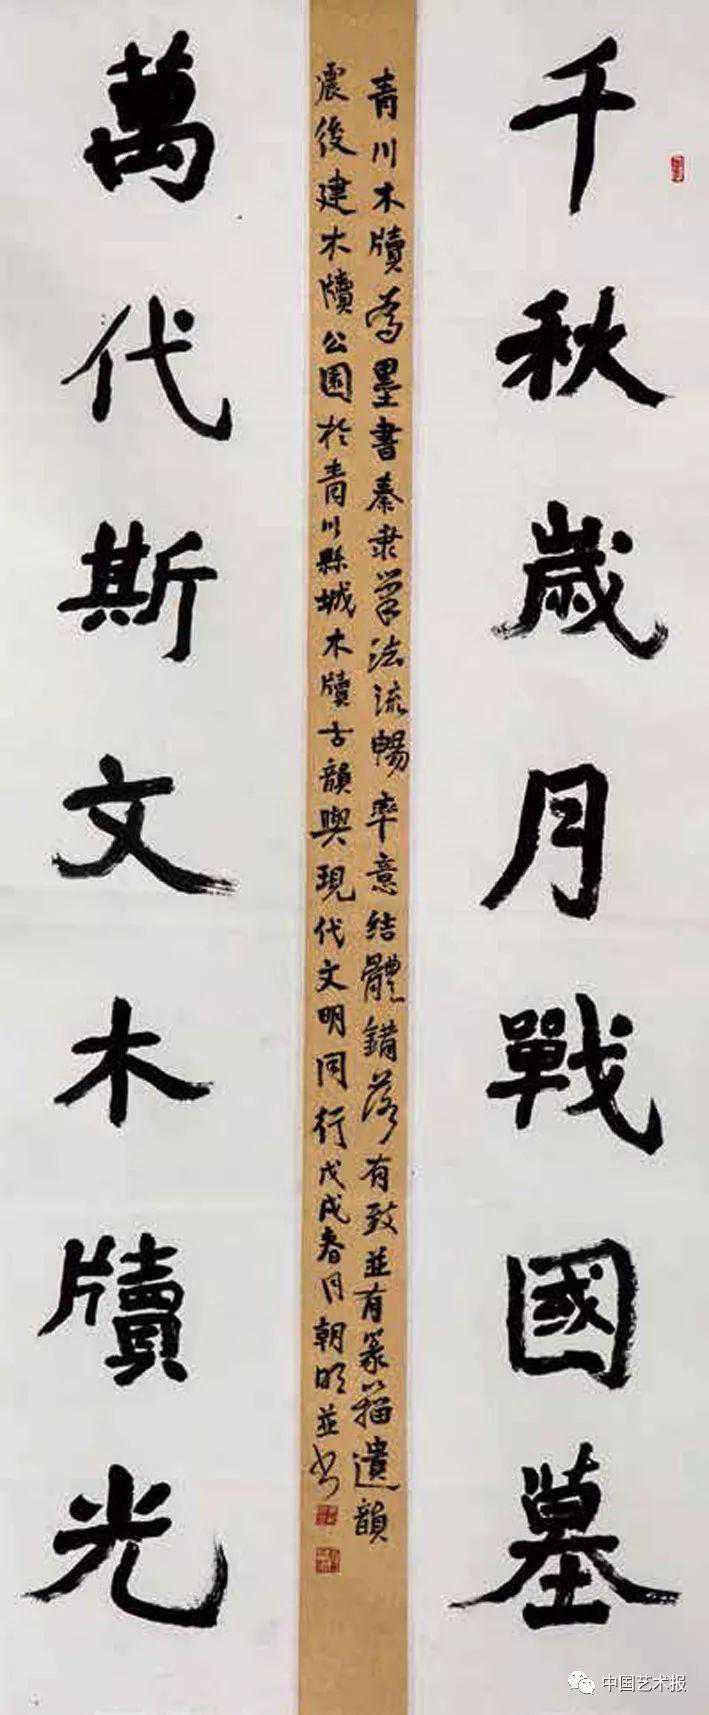 千秋歲月戰國墓
萬代斯文木牘光
青川木牘為墨書秦隶筆法流暢率意结體錯落有致並有篆籀遺韻
震後建木牘公園於青川縣城木牘古韻與現代文明同行戊戌春月朝明並书
中国艺术报